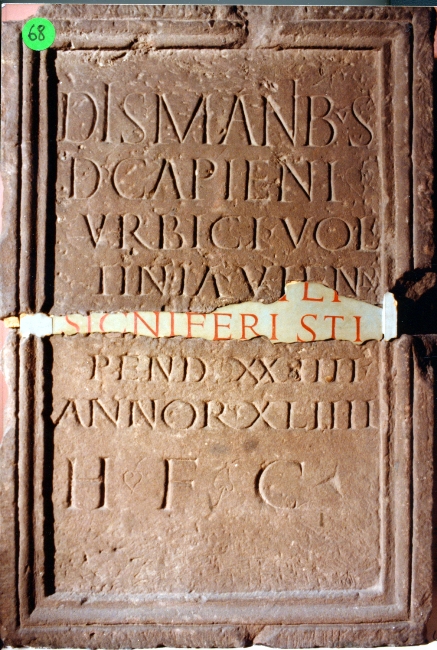 68
DIS MANBVS
D·CAPIENI
VRBICI·VOL
TINIA VIENN
SIGNIFERI STI
PEND XXIIII
ANNOR·XLIIII
H F C